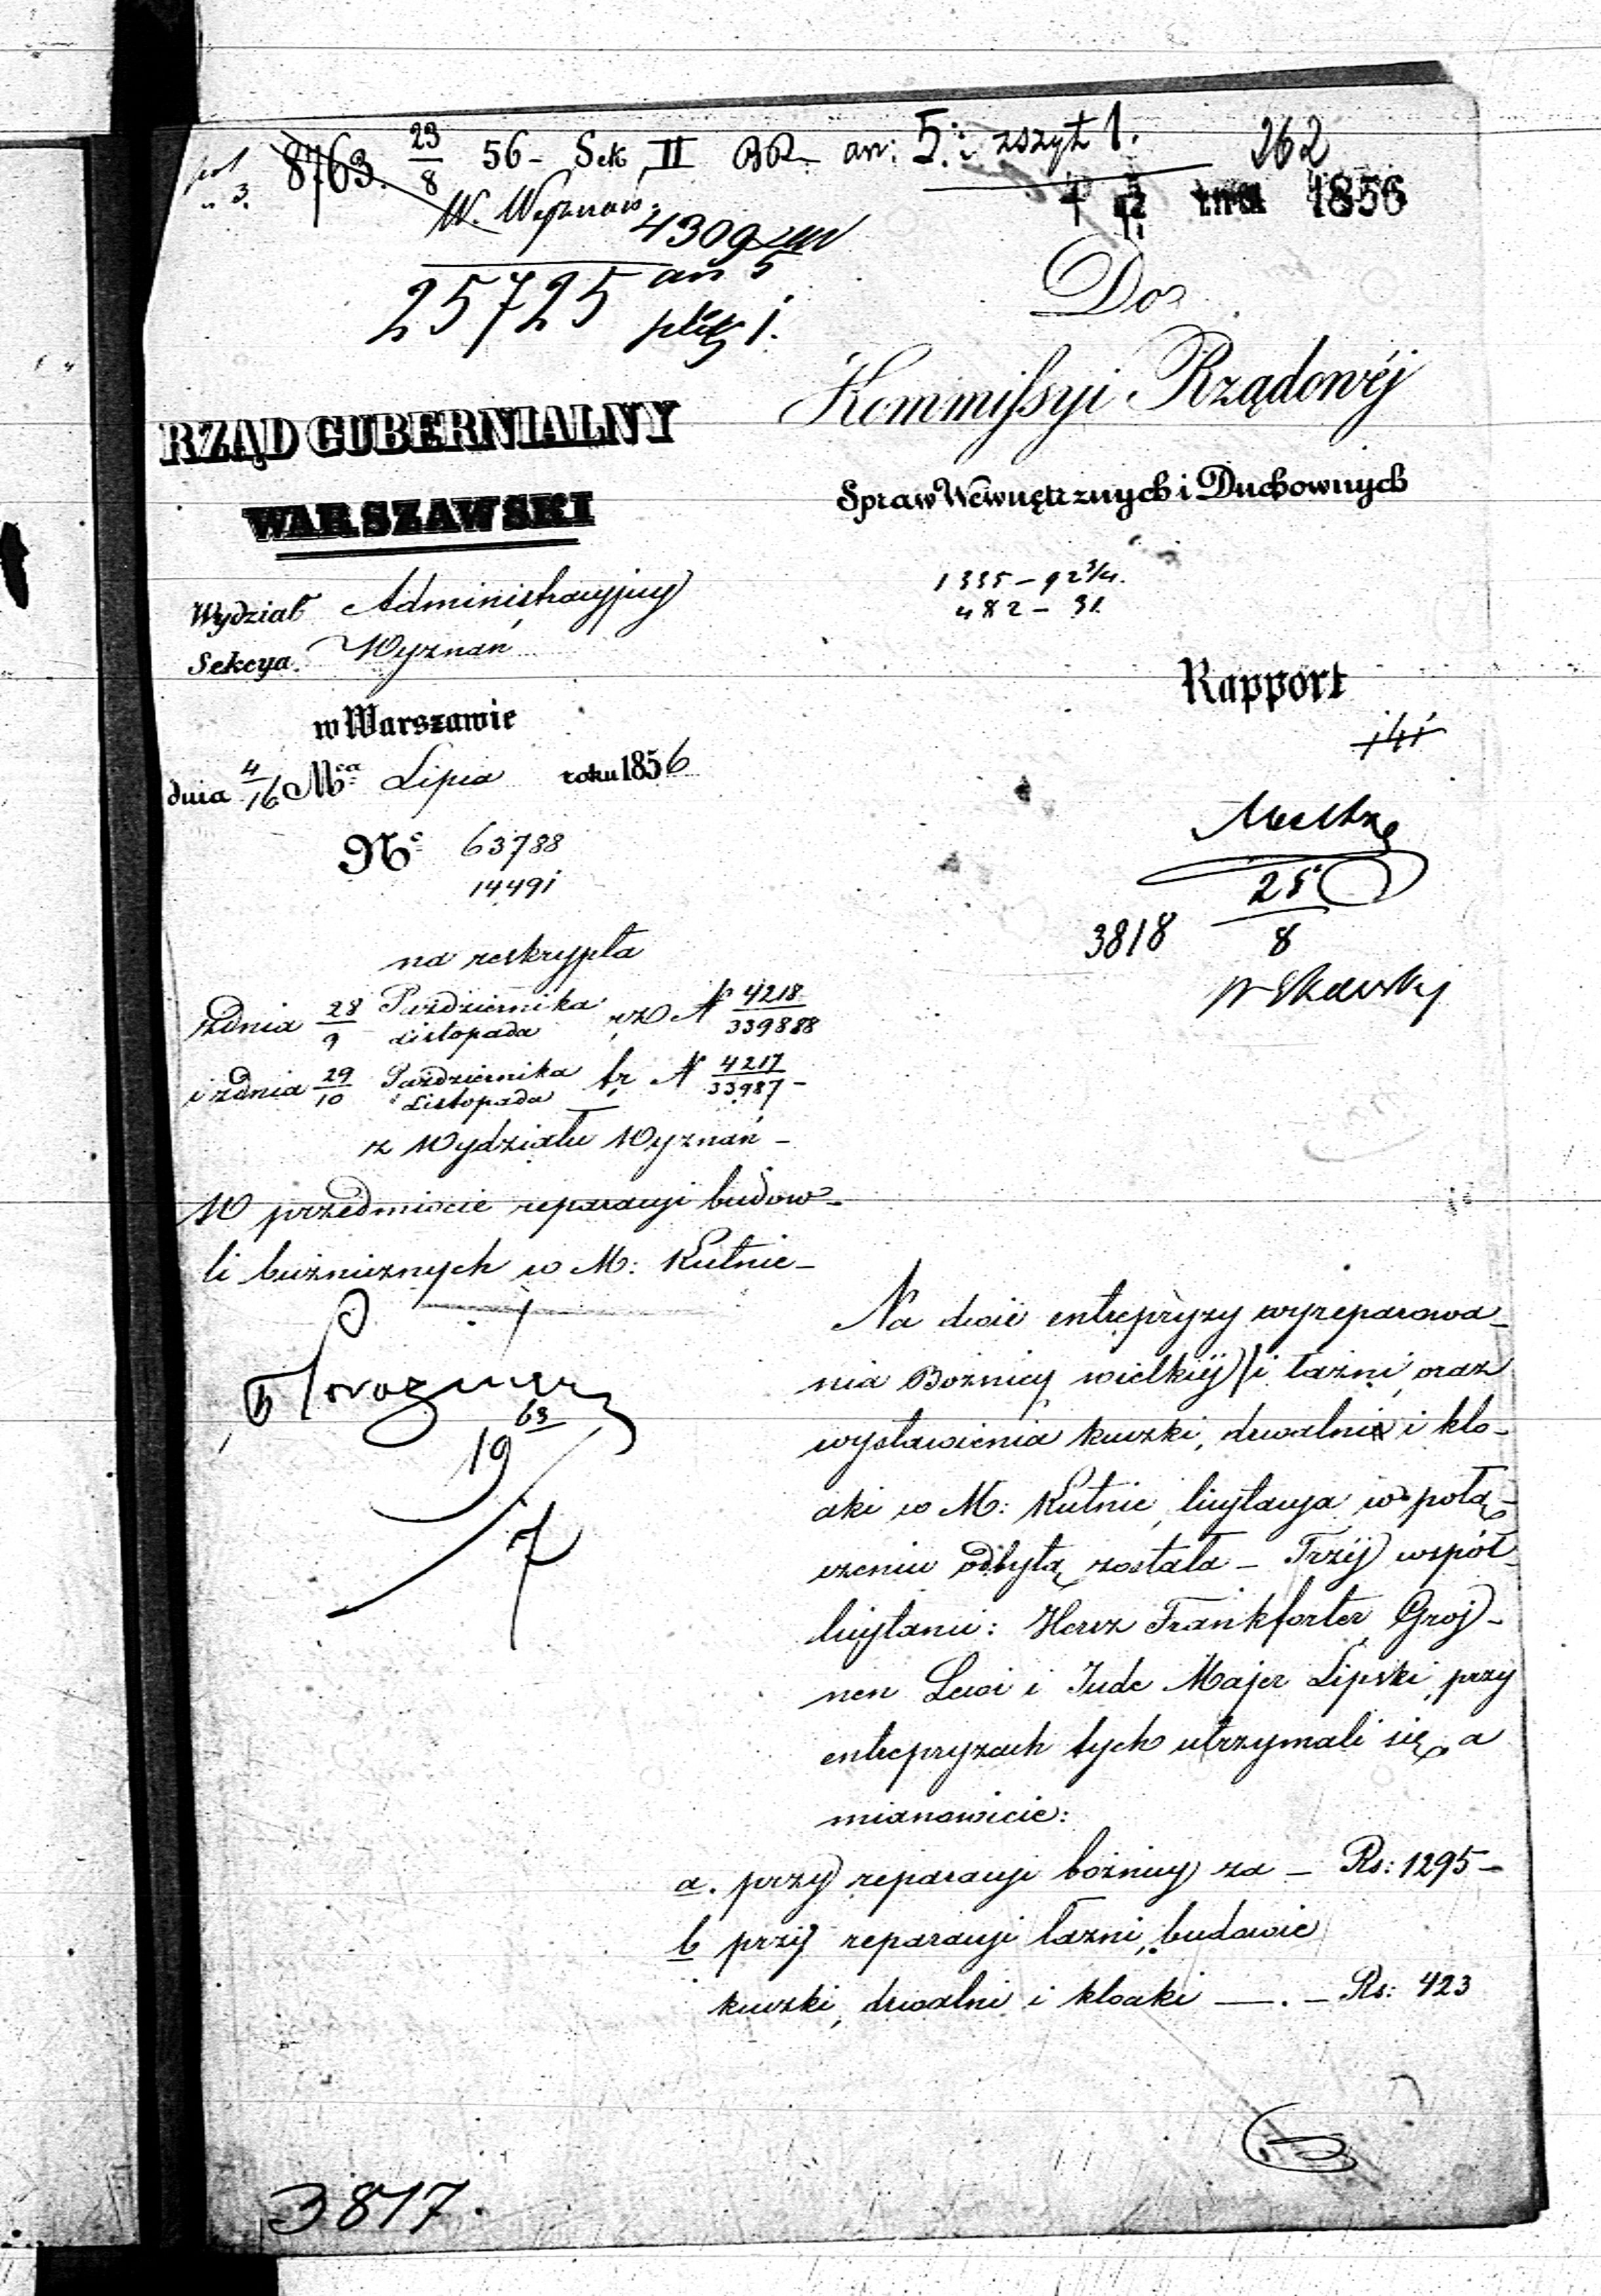 8763. 23/8 56 - Sek II an: 5. zszyt 1. 262
W. Wyznań. 1856
4309
25725 an 5
plik 1.
Do
Kommissyi Rządowéj
RZĄD GUBERNIALNY
WARSZAWSKI
Spraw Wewnętrznych i Duchownych
1335 - 92 3/4.
482 - 31.
Wydział Administracyjny
Sekcya Wyznań
Rapport
w Warszawie
dnia 4/16 Mca Lipca roku 1856
No 63788
14491
25
3818 8
na reskrypta
zdnia 28/9 Października/Listopada No 4218/339888
i zdnia 29/10 Października/Listopada br No 4217/33987 -
z Wydziału Wyznań -
W przedmiocie reparacyi budow-
li bóżniznych w M: Kutnie -
Na dwie entrepryzy wyreparowa-
nia Bożnicy wielkiéj i łaźni, oraz
wystawienia kuczki, drwalni i klo-
aki w M: Kutnie, licytacya w połą-
czeniu odbytą została - Trzéj współ-
licytanci: Hersz Frankforter, Groj-
nen Lewi i Jude Majer Lipski, przy
entrepryzach tych utrzymali się, a
mianowicie:
a. przy reparacyi bożnicy za - Rs: 1295 -
b przy reparacyi łaźni, budowie
kuczki, drwalni i kloaki - . - Rs: 423
19
7
3817.